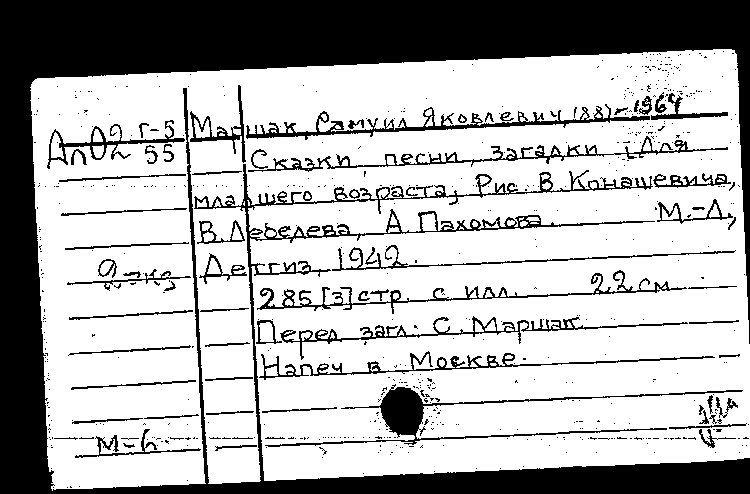 Ап02 Г-5
55
Маршак, Самуил Яковлевич, 1887-1964
Сказки, песни, загадки [Для
младшего возраста]. Рис. В. Конашевича,
В. Лебедева, А. Пахомова. М.-Л.,
2 экз Детгиз, 1942.
285,[3] стр. с илл. 22 см
Перед загл: С. Маршак.
Напеч в Москве.
М-6